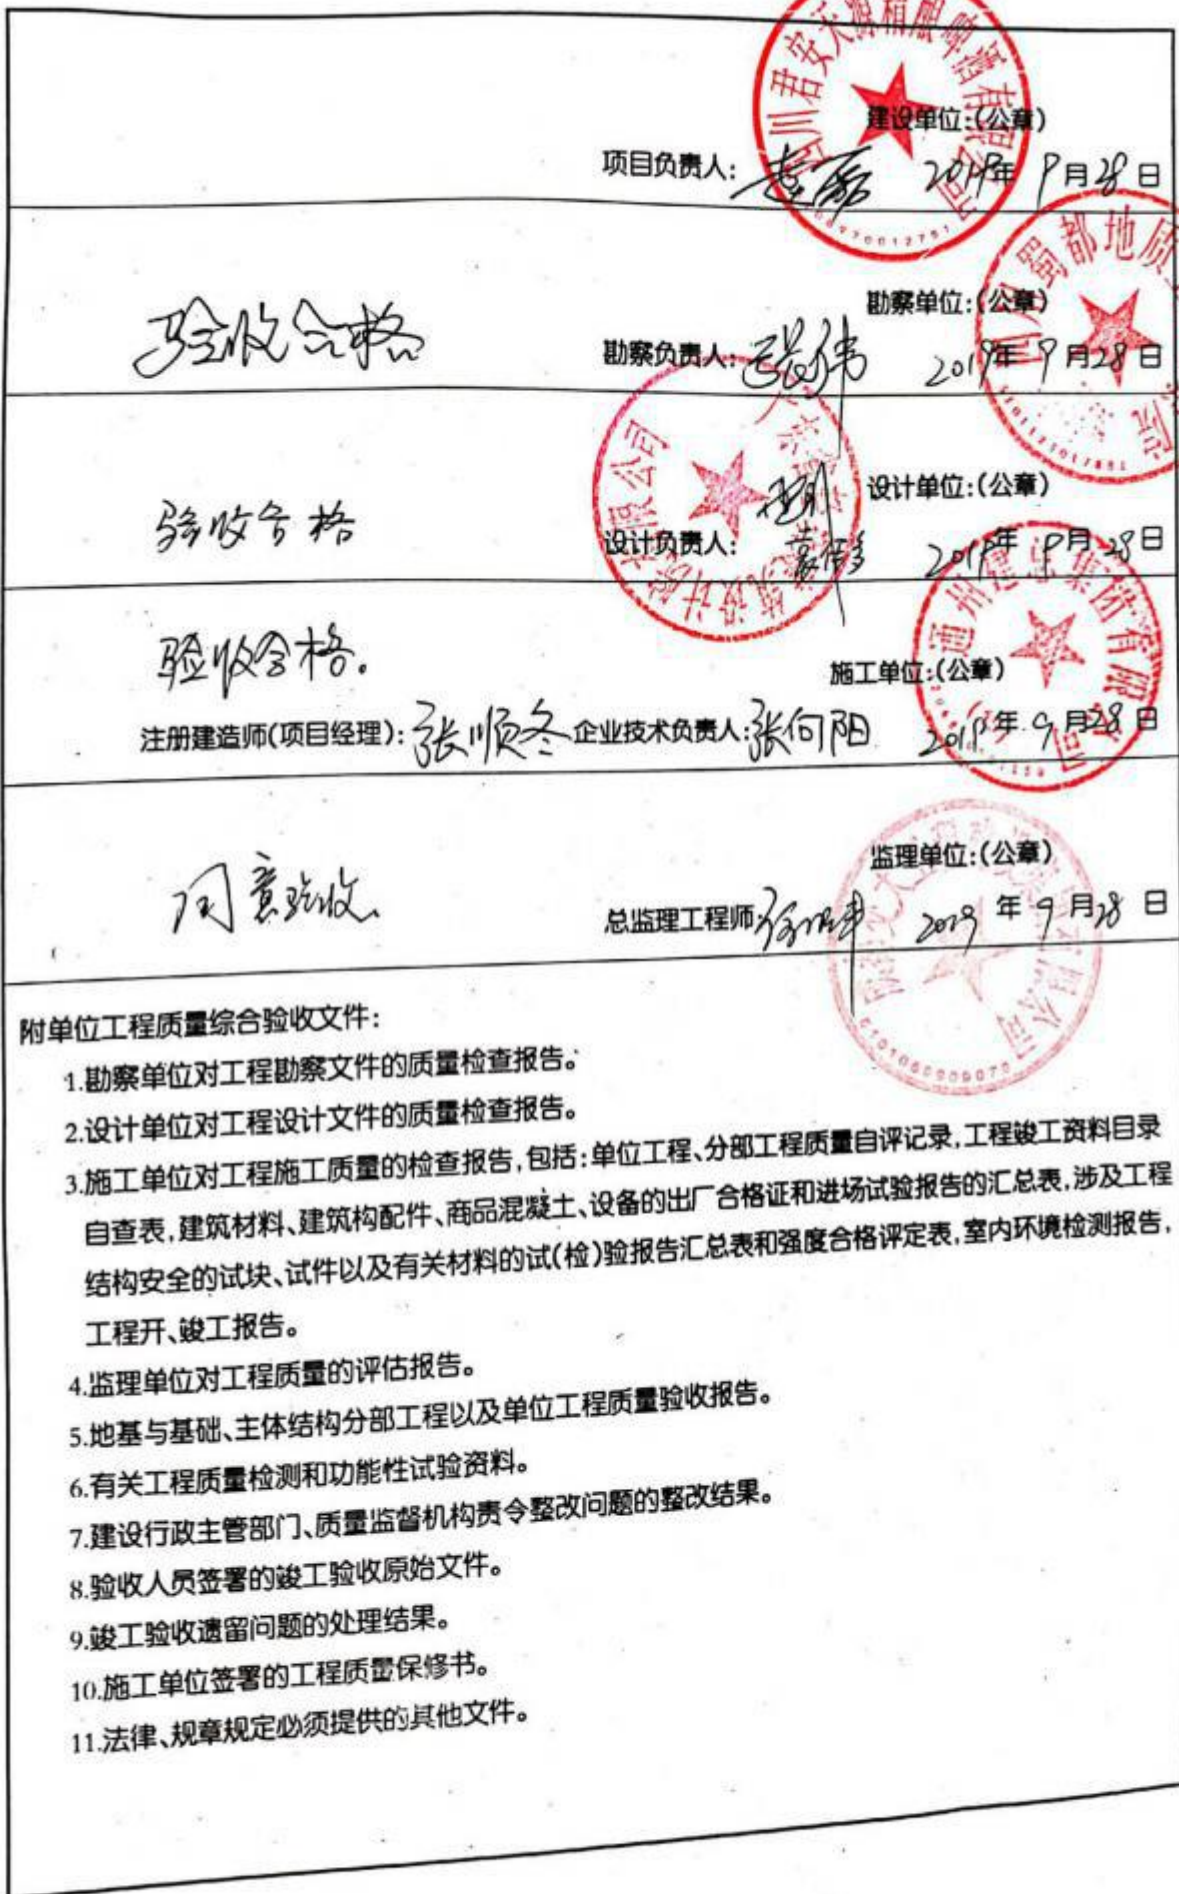 四川君安天源精酿啤酒有限公司
建设单位:(公章)
项目负责人: 2019年9月28日
勘察单位:(公章)
验收合格
勘察负责人: 2019年9月28日
设计单位:(公章)
验收合格
设计负责人: 2019年9月28日
验收合格。
施工单位:(公章)
注册建造师(项目经理):张顺冬 企业技术负责人:张向阳 2019年9月28日
监理单位:(公章)
同意验收
总监理工程师 2019年9月28日
附单位工程质量综合验收文件:
1.勘察单位对工程勘察文件的质量检查报告。
2.设计单位对工程设计文件的质量检查报告。
3.施工单位对工程施工质量的检查报告,包括:单位工程、分部工程质量自评记录,工程竣工资料目录
自查表,建筑材料、建筑构配件、商品混凝土、设备的出厂合格证和进场试验报告的汇总表,涉及工程
结构安全的试块、试件以及有关材料的试(检)验报告汇总表和强度合格评定表,室内环境检测报告,
工程开、竣工报告。
4.监理单位对工程质量的评估报告。
5.地基与基础、主体结构分部工程以及单位工程质量验收报告。
6.有关工程质量检测和功能性试验资料。
7.建设行政主管部门、质量监督机构责令整改问题的整改结果。
8.验收人员签署的竣工验收原始文件。
9.竣工验收遗留问题的处理结果。
10.施工单位签署的工程质量保修书。
11.法律、规章规定必须提供的其他文件。